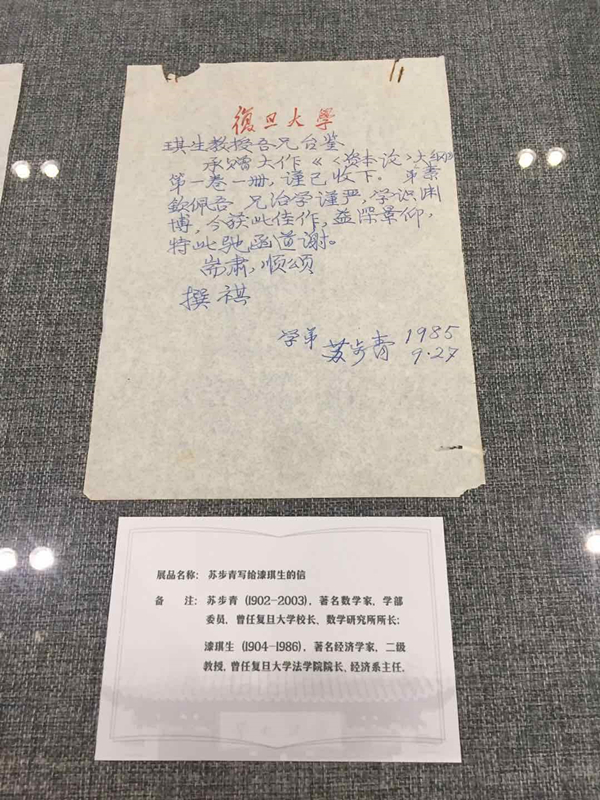 復旦大學
琪生教授吾兄台鉴
承赠大作《〈资本论〉大纲》
第一卷一册，谨已收下。弟素
钦佩吾 兄治学谨严，学识渊
博，今获此佳作，益深景仰，
特此驰函道谢。
耑肃，顺颂
撰祺
学弟 苏步青 1985
9.27
展品名称： 苏步青写给漆琪生的信
备 注： 苏步青（1902-2003），著名数学家，学部
委员，曾任复旦大学校长、数学研究所所长；
漆琪生（1904-1986），著名经济学家，二级
教授，曾任复旦大学法学院院长、经济系主任。